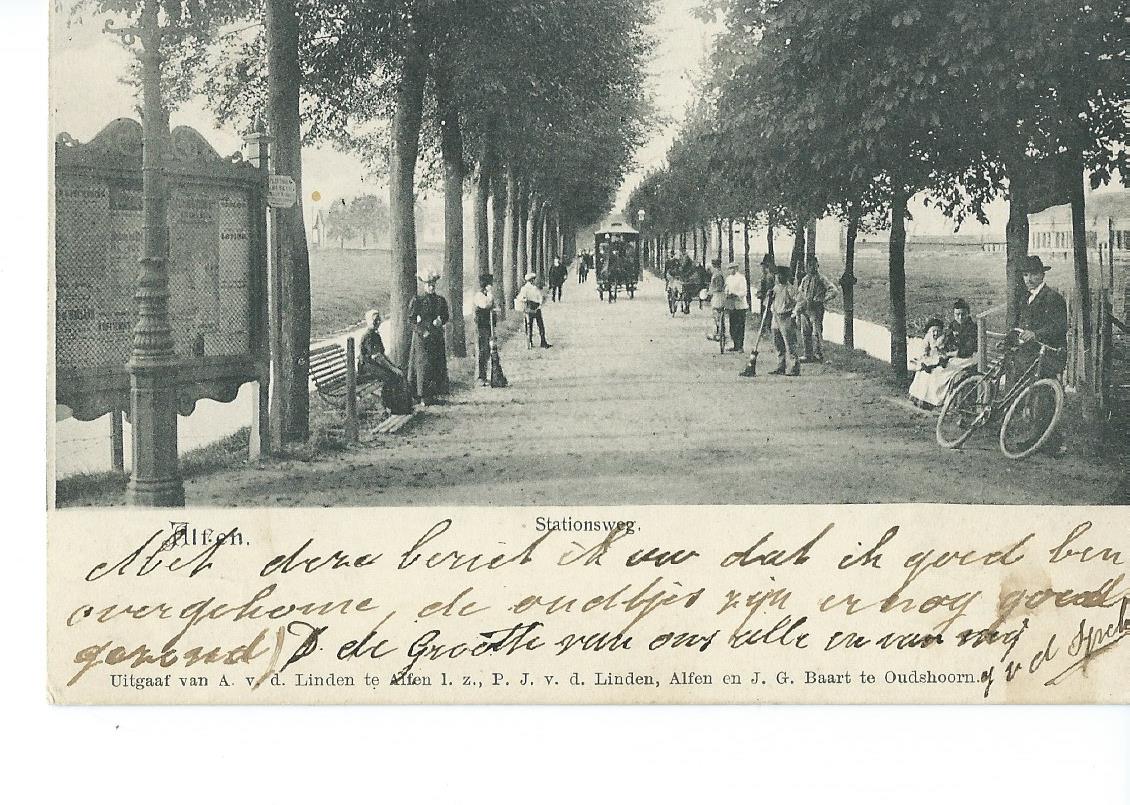 Alfen.
Stationsweg.
Met deze beriet ik uw dat ik goed ben
overgekome, de oudtjes zijn er nog goed
gezond) D de Groette van ons alle en van mij
v d
Uitgaaf van A. v. d. Linden te Alfen l. z., P. J. v. d. Linden, Alfen en J. G. Baart te Oudshoorn.